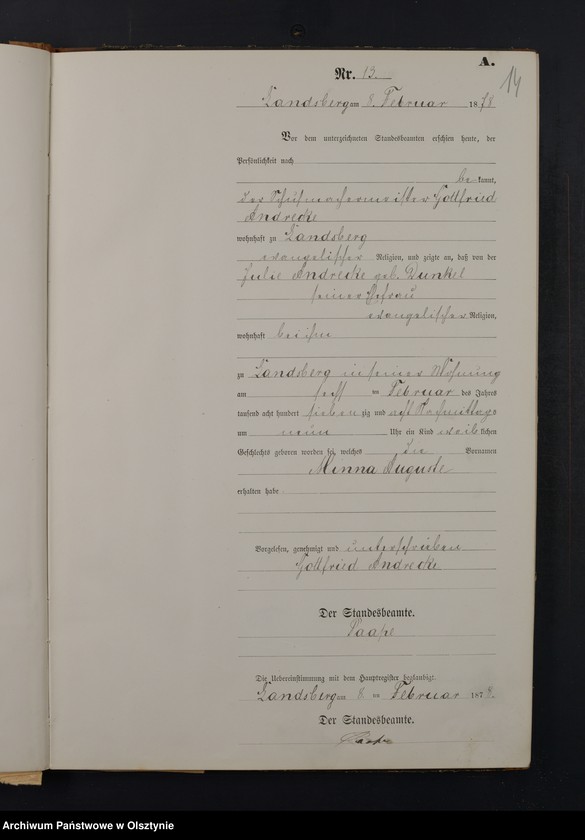 A.
14
Nr. 13.
Landsberg am 8. Februar 1878
Vor dem unterzeichneten Standesbeamten erschien heute, der
Persönlichkeit nach
be kannt,
der Schuhmachermeister Gottfried
Andrecke
wohnhaft zu Landsberg
evangelischer Religion, und zeigte an, daß von der
Julie Andrecke geb. Dunkel
seiner Ehefrau
evangelischer Religion,
wohnhaft bei ihm
zu Landsberg in seiner Wohnung
am ten Februar des Jahres
tausend acht hundert sieben zig und acht Nachmittags
um neun Uhr ein Kind weib lichen
Geschlechts geboren worden sei, welches die Vornamen
Minna Auguste
erhalten habe
Vorgelesen, genehmigt und unterschrieben
Gottfried Andrecke
Der Standesbeamte.
Paape
Die Uebereinstimmung mit dem Hauptregister beglaubigt.
Landsberg am 8 ten Februar 1878.
Der Standesbeamte.
Paape
Archiwum Państwowe w Olsztynie